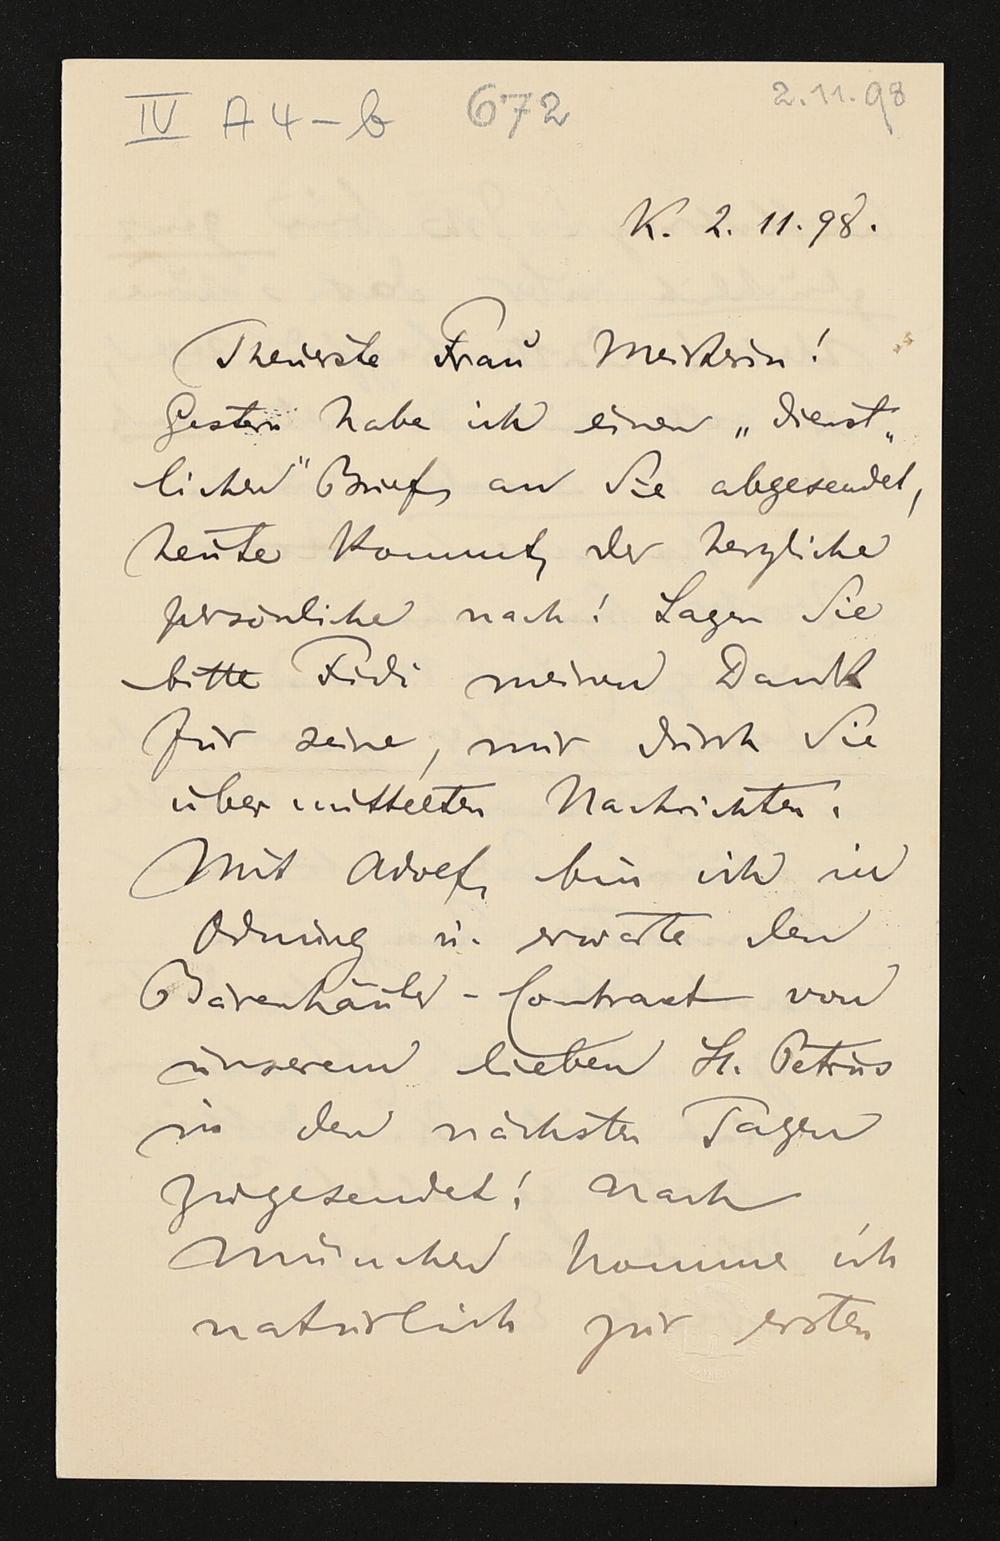 IV A 4 – b 672 2.11.98
K. 2. 11. 98.
Theuerste Frau Meisterin!
Gestern habe ich einen „dienst„
lichen" Brief an Sie abgesendet,
heute kommt der herzliche
persönliche nach! Sagen Sie
bitte Fidi meinen Dank
für seine, mir durch Sie
übermittelten Nachrichten.
Mit Adolf bin ich in
Ordnung u. erwarte den
Bärenhäuter-Contract von
unserem lieben St. Petrus
in den nächsten Tagen
zugesendet! Nach
München komme ich
natürlich zur ersten